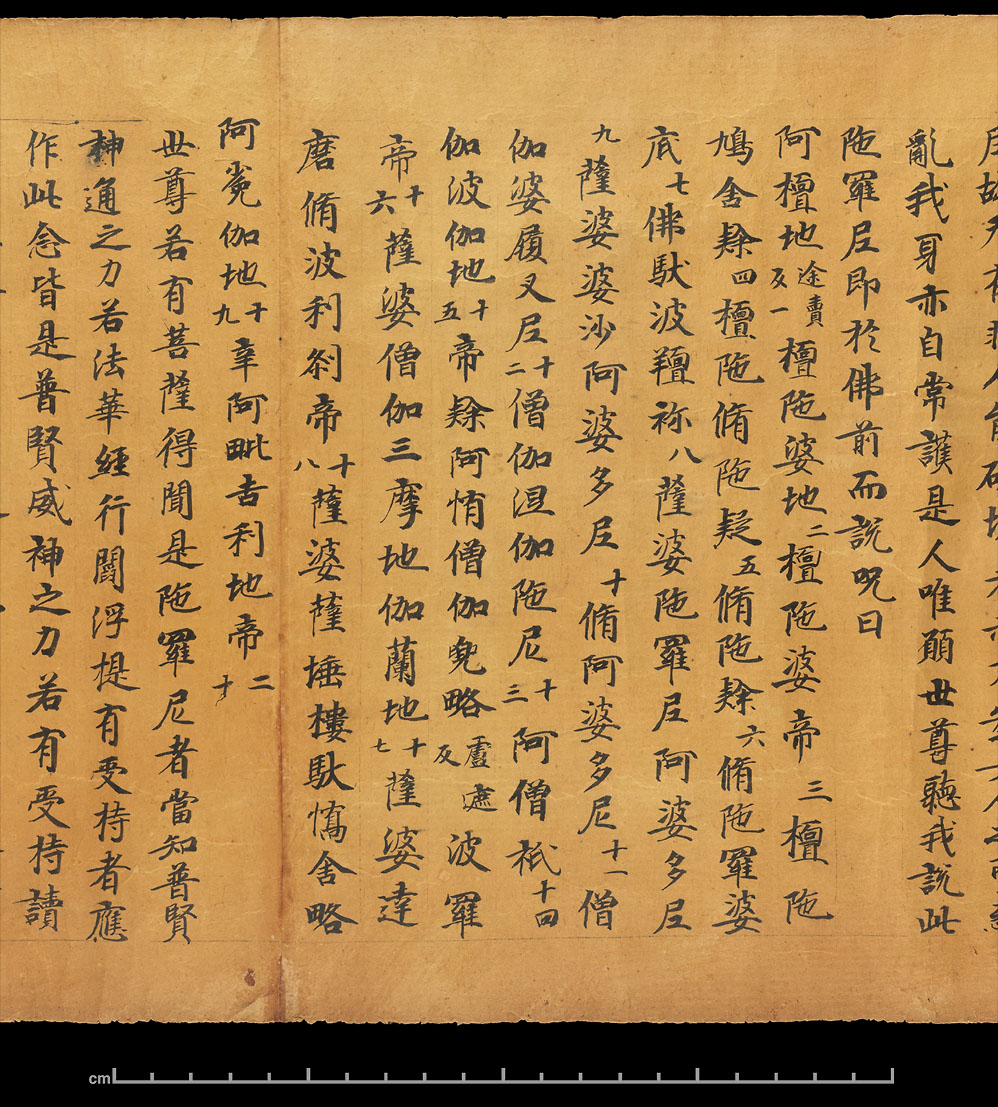 亂我身亦自常護是人唯願世尊聽我說此
陁羅尼即於佛前而說呪曰
阿檀地途賣反一檀陁婆地二檀陁婆帝三檀陁
鳩舍隸四檀陁脩陁疑五脩陁隸六脩陁羅婆
底七佛馱波羶祢八薩婆陁羅尼阿婆多尼
九薩婆婆沙阿婆多尼十脩阿婆多尼十一僧
伽婆履叉尼十二僧伽涅伽陁尼十三阿僧祇十四
伽波伽地十五帝隸阿惰僧伽兜略盧遮反波羅
帝十六薩婆僧伽三摩地伽蘭地十七薩婆達
磨脩波利剎帝十八薩婆薩埵樓馱憍舍略
阿㝹伽地十九辛阿毗吉利地帝二十
世尊若有菩薩得聞是陁羅尼者當知普賢
神通之力若法華經行閻浮提有受持者應
作此念皆是普賢威神之力若有受持讀
cm